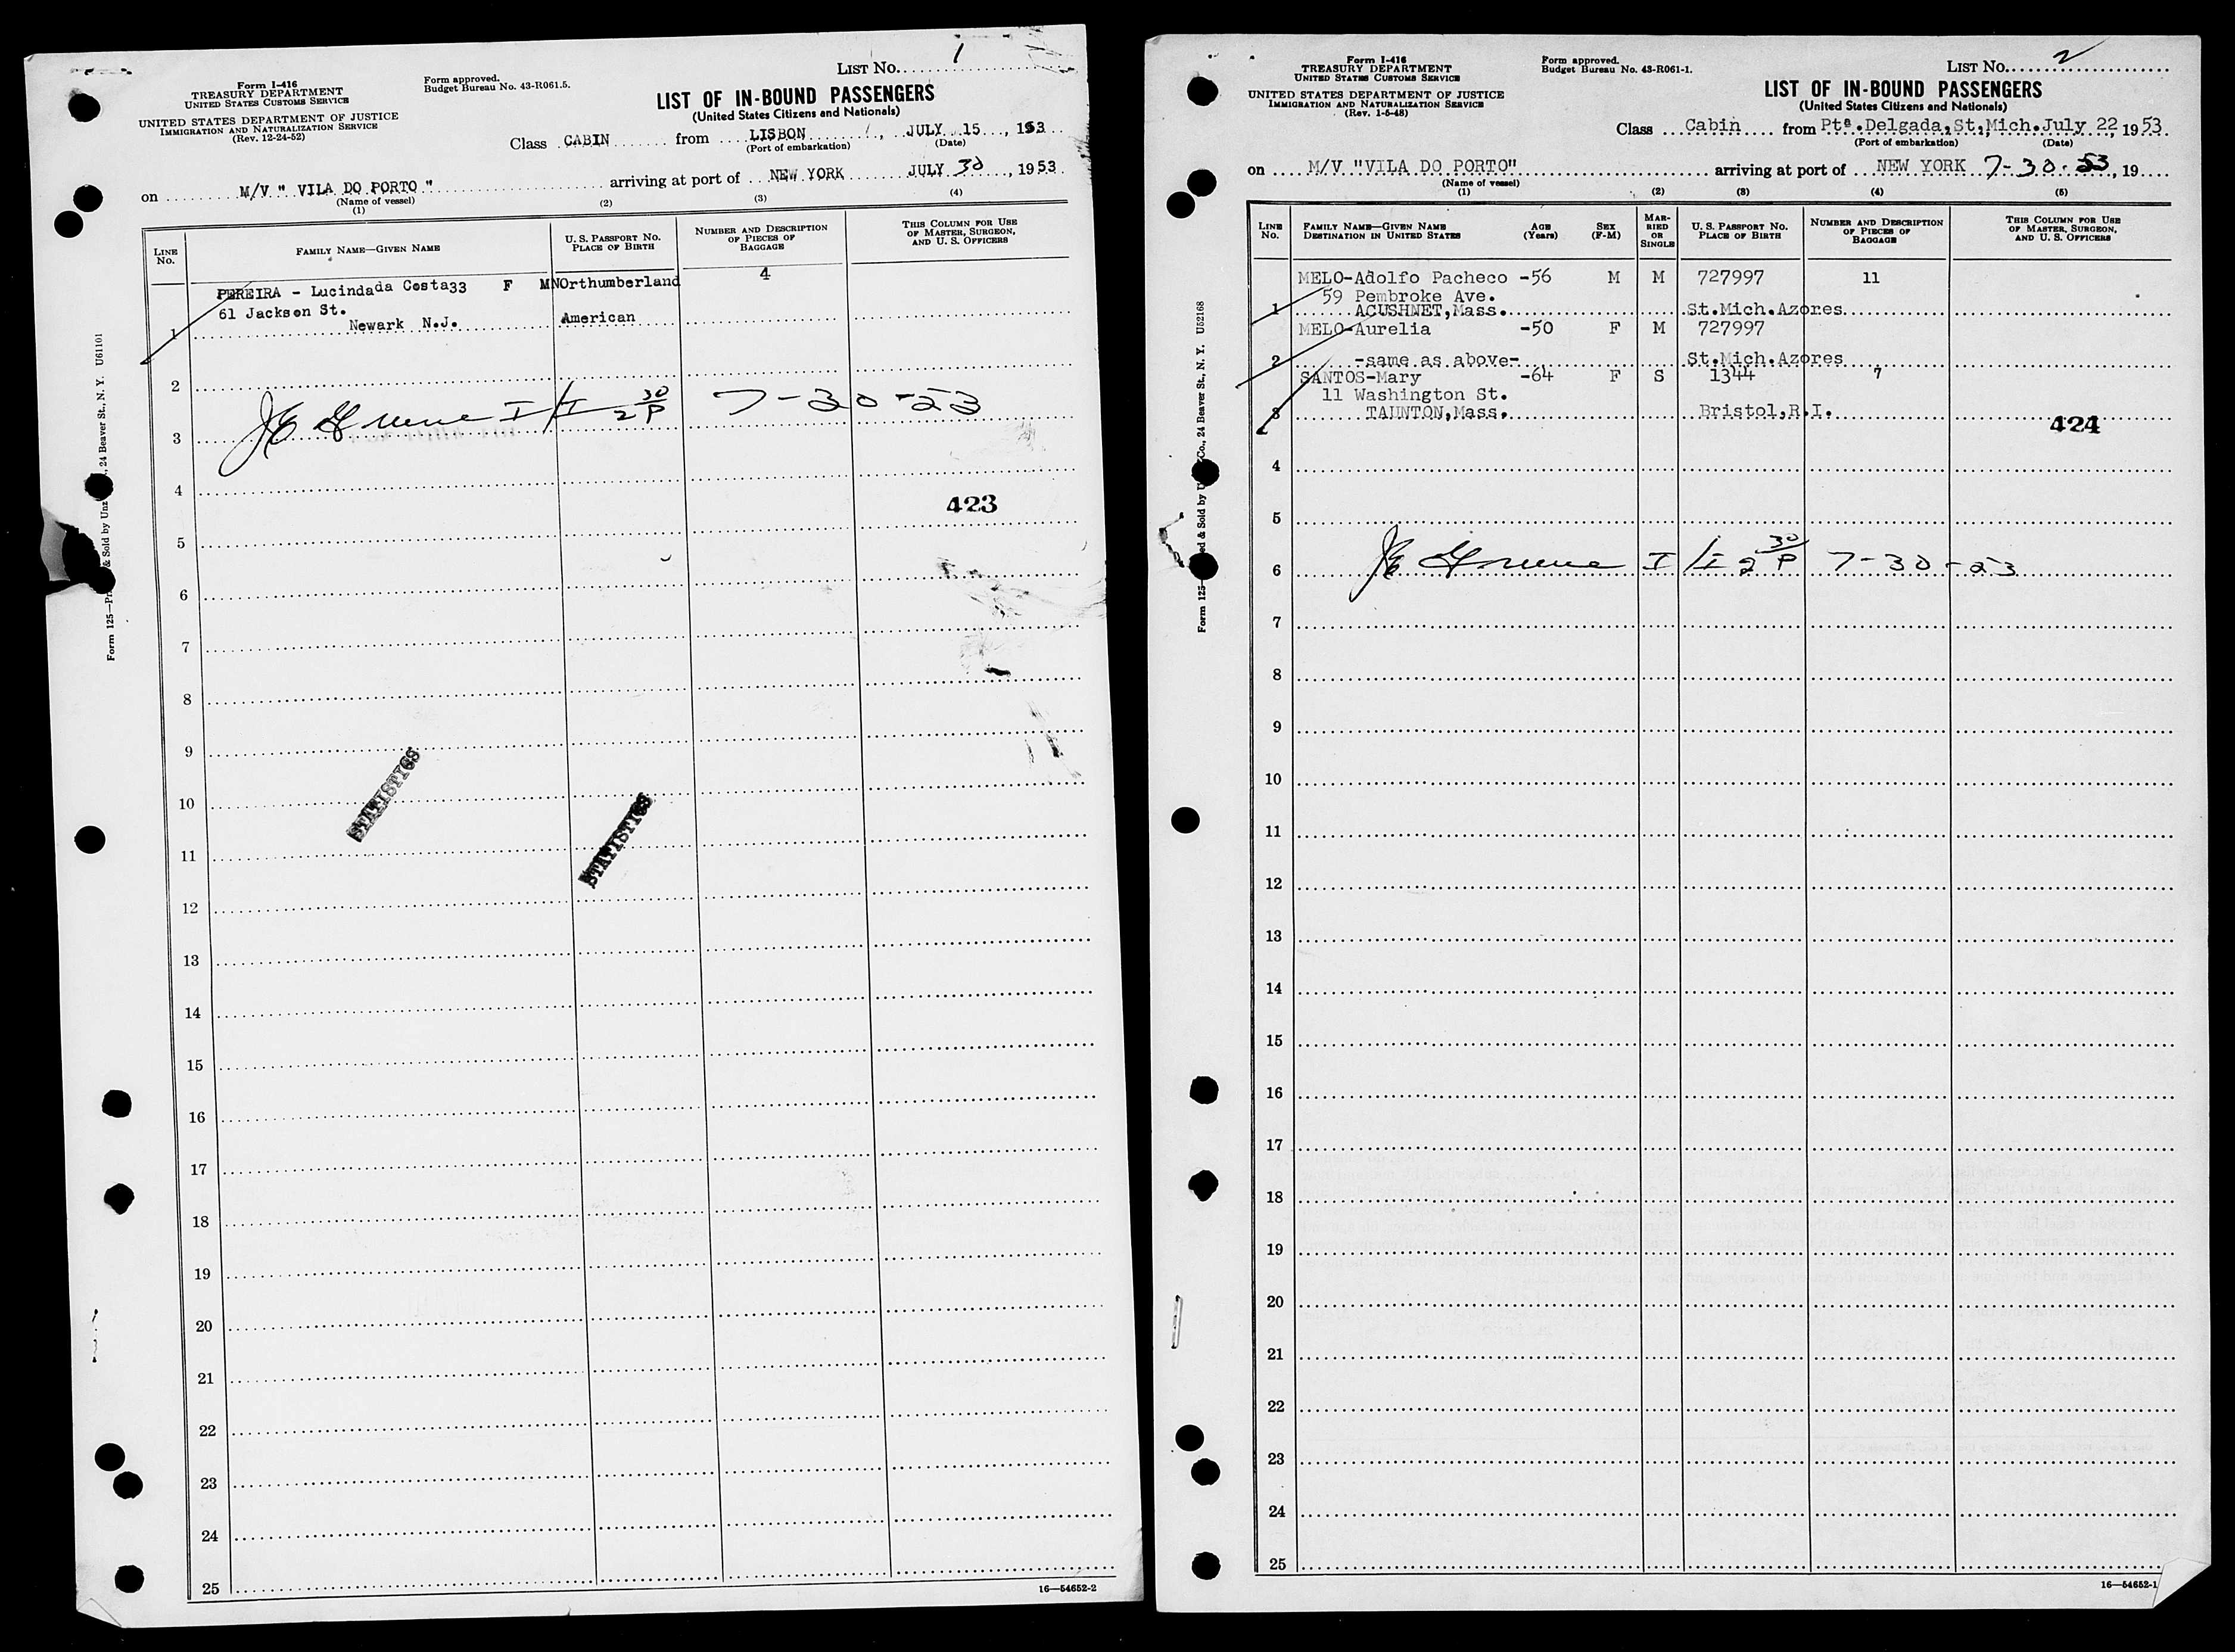 LIST No. 1
Form I-416
TREASURY DEPARTMENT
UNITED STATES CUSTOMS SERVICE
UNITED STATES DEPARTMENT OF JUSTICE
IMMIGRATION AND NATURALIZATION SERVICE
(Rev. 12-24-52)
Form approved.
Budget Bureau No. 43-R061.5.
LIST OF IN-BOUND PASSENGERS
(United States Citizens and Nationals)
Class CABIN from LISBON, JULY 15, 1953
(Port of embarkation) (Date)
on M/V " VILA DO PORTO " arriving at port of NEW YORK JULY 30, 1953
(Name of vessel)
(1) (2) (3) (4)
LINE No. FAMILY NAME—GIVEN NAME U. S. PASSPORT No. PLACE OF BIRTH NUMBER AND DESCRIPTION OF PIECES OF BAGGAGE THIS COLUMN FOR USE OF MASTER, SURGEON, AND U. S. OFFICERS
PEREIRA - Lucindada Costa33 F MNOrthumberland 4
61 Jackson St.
1 Newark N.J. American
2
3 7-30-53
4
423
5
6
7
8
9
STATISTICS
10
STATISTICS
11
12
13
14
15
16
17
18
19
20
21
22
23
24
25
16—54652-2
Form 125— & Sold by Unz , 24 Beaver St., N. Y. U61101
LIST No. 2
Form I-416
TREASURY DEPARTMENT
UNITED STATES CUSTOMS SERVICE
UNITED STATES DEPARTMENT OF JUSTICE
IMMIGRATION AND NATURALIZATION SERVICE
(Rev. 1-5-48)
Form approved.
Budget Bureau No. 43-R061-1.
LIST OF IN-BOUND PASSENGERS
(United States Citizens and Nationals)
Class Cabin from Ptª.Delgada,St,Mich.July 22, 1953
(Port of embarkation) (Date)
on M/V "VILA DO PORTO" arriving at port of NEW YORK 7-30-53, 19
(Name of vessel)
(1) (2) (3) (4) (5)
LINE No. FAMILY NAME—GIVEN NAME DESTINATION IN UNITED STATES AGE (Years) SEX (F-M) MARRIED OR SINGLE U. S. PASSPORT No. PLACE OF BIRTH NUMBER AND DESCRIPTION OF PIECES OF BAGGAGE THIS COLUMN FOR USE OF MASTER, SURGEON, AND U. S. OFFICERS
MELO-Adolfo Pacheco -56 M M 727997 11
59 Pembroke Ave.
1 ACUSHNET,Mass. St.Mich.Azores
MELO-Aurelia -50 F M 727997
2 -same as above- St.Mich.Azores
SANTOS-Mary -64 F S 1344 7
11 Washington St.
3 TAUNTON,Mass. Bristol,R.I.
424
4
5
6 7-30-53
7
8
9
10
11
12
13
14
15
16
17
18
19
20
21
22
23
24
25
16—54652-1
Form 125— ed & Sold by U Co., 24 Beaver St., N. Y. U52168